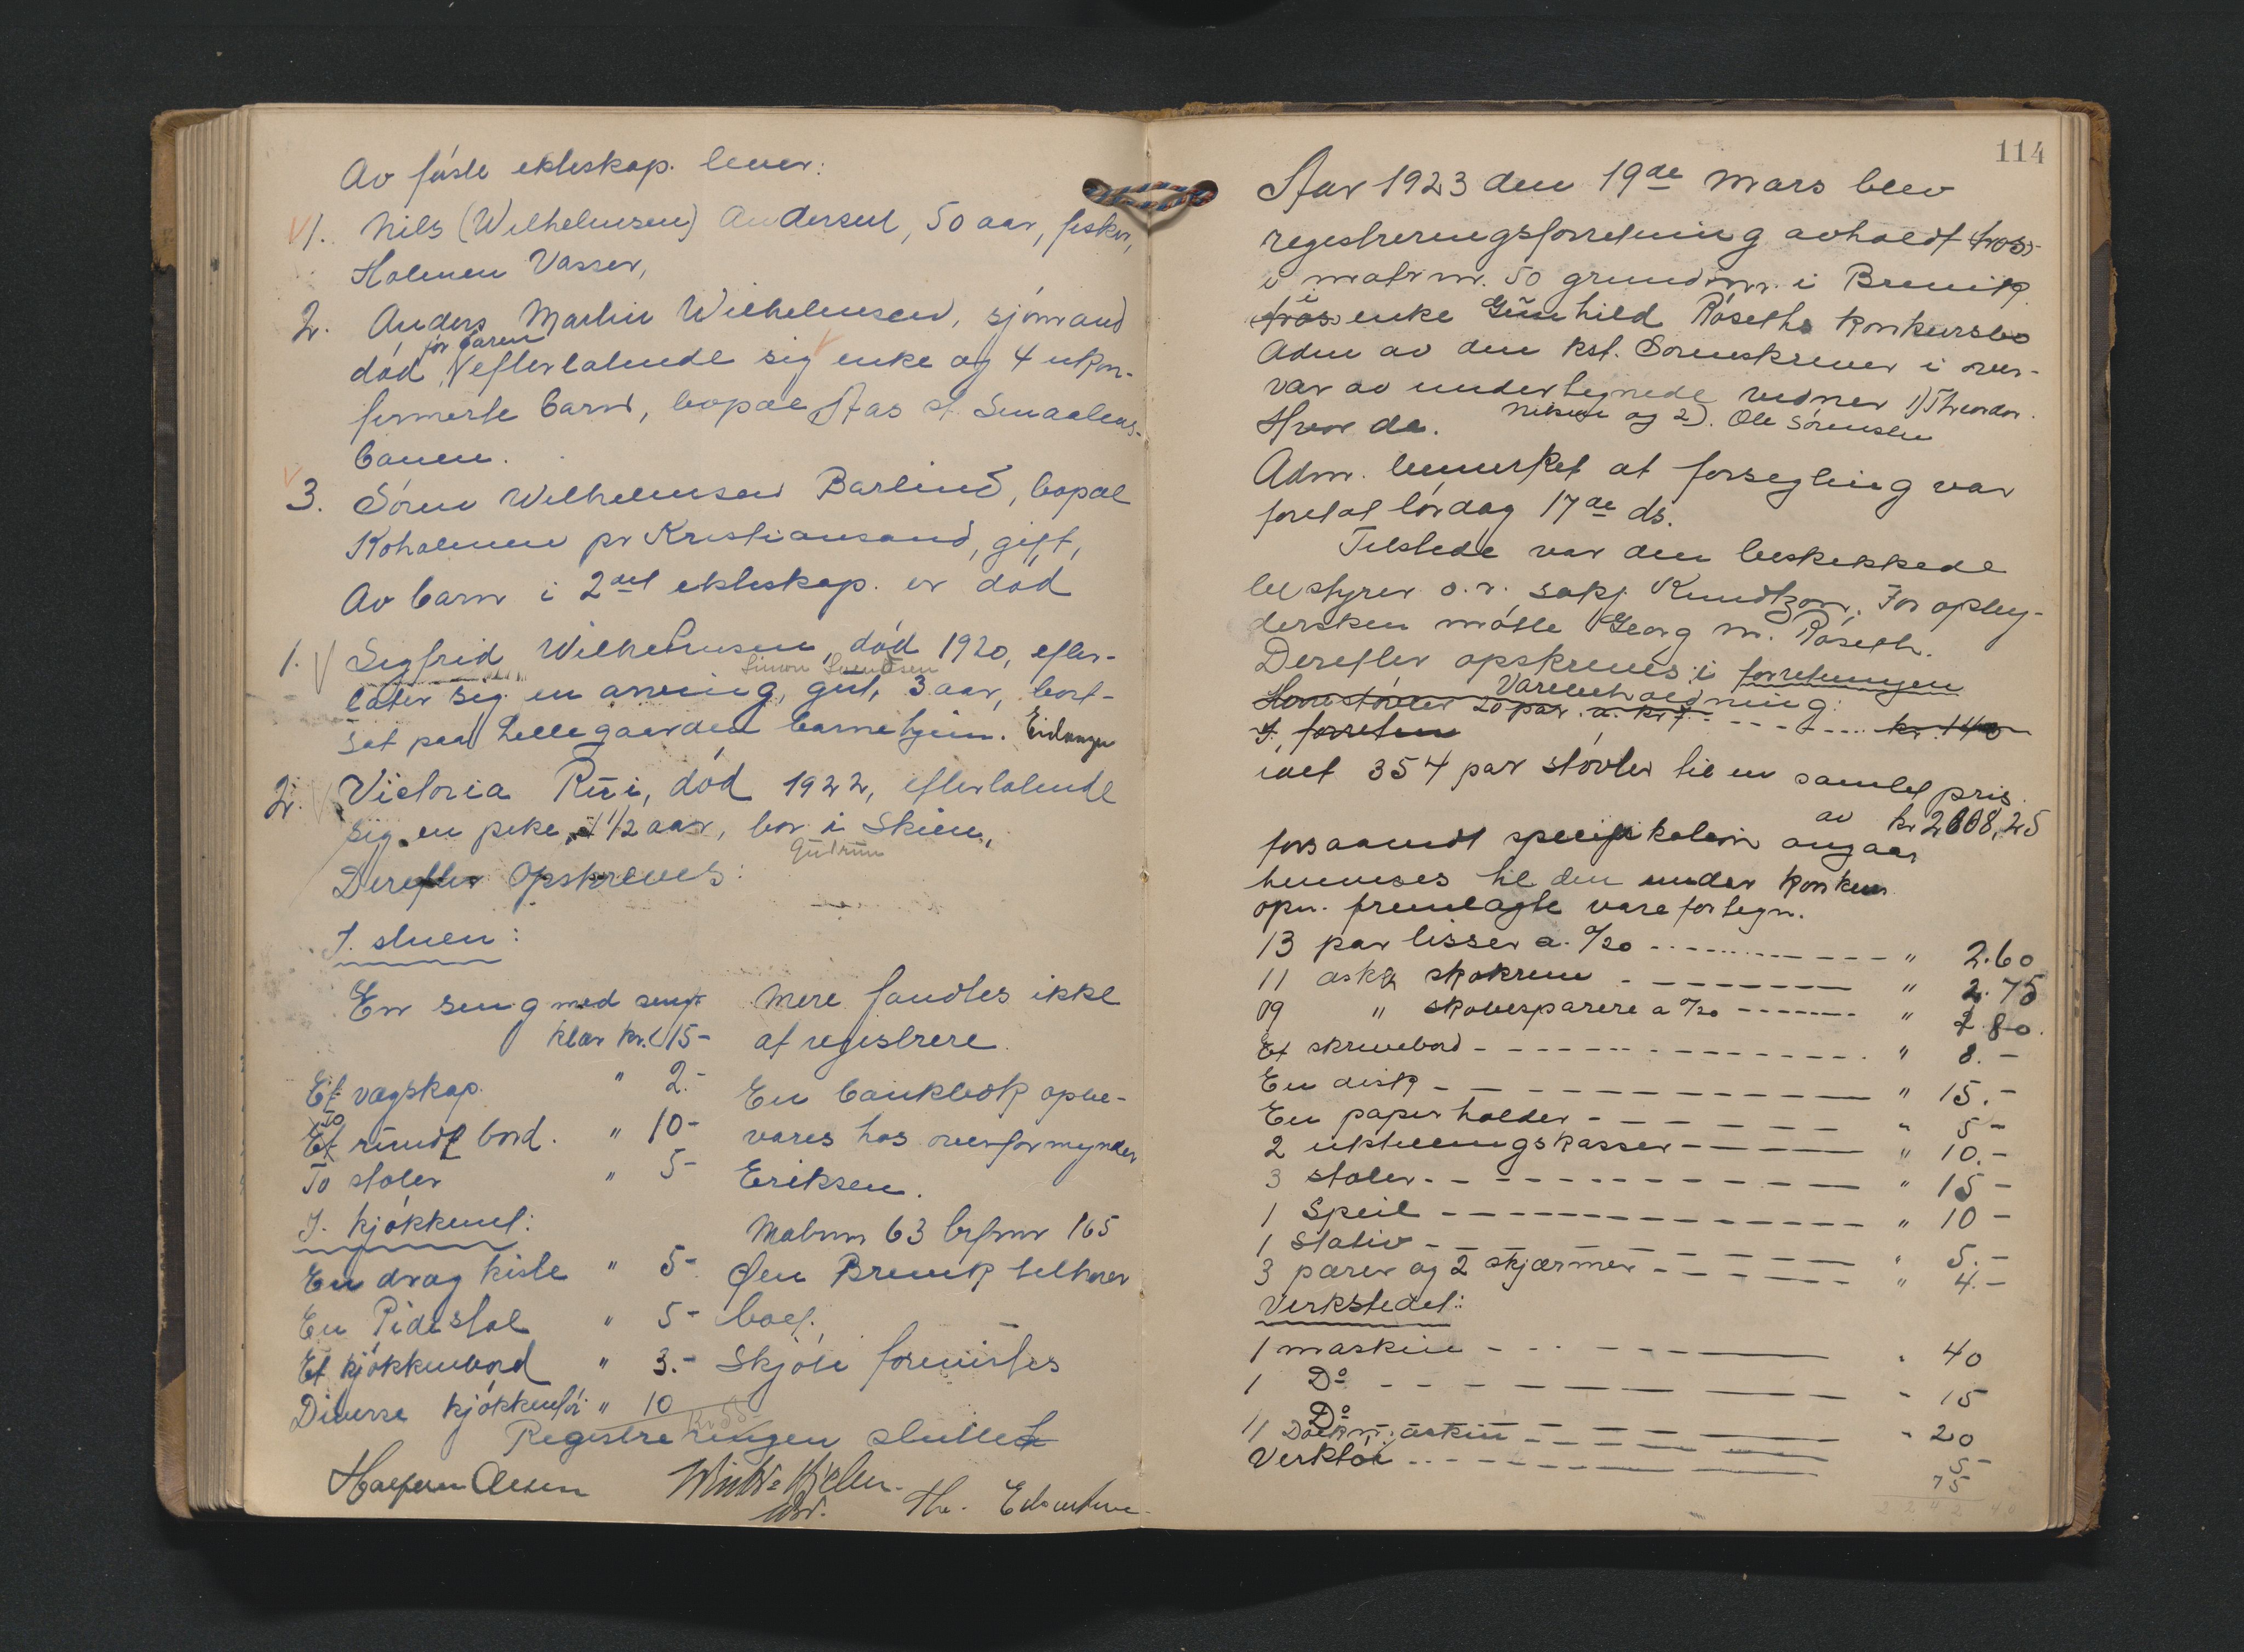 Av første ekteskap. lever:
1. Nils (Wilhelmsen) Andersen, 50 aar, fisker,
Holmen Vasser,
2. Anders Martin Wilhelmsen, sjømand
død, efterlatende sig enke og 4 ukon-
før faren
firmerte barn, bopæl Aas st. Smaalens-
banen.
3. Søren Wilhelmsen Barlind, bopæl
Koholmen pr Kristiansand, gift,
Av barn i 2det ekteskap. er død
1. Sigfrid Wilhelmsen, død 1920, efter-
Simon
later sig en arving, gut, 3 aar, bort-
sat paa Lillegaarden barnehjem. Eidanger
2. Victoria Rui, død 1922, efterlatende
sig en pike, 1 1/2 aar, bor i Skien,
Gudrun
Derefter opskreves:
I. stuen:
En seng med sengk
klær kr. 15-
Et vægskap. " 2.-
To
Et rundt bord. " 10-
To stoler " 5-
I. kjøkkenet:
En dragkiste " 5-
En Pidestal " 5-
Et kjøkkenbord " 3.-
Diverse kjøkkentøi " 10
Mere fandtes ikke
at registrere.
En bankbok opbe-
vares hos overformynder
Eriksen.
Matrnr 63 brnr 165
Øen Brevik tilhører
boet.
Skjøte forevistes
Registreringen sluttet
114
Aar 1923 den 19de mars blev
registreringsforretning avholdt hos
i matr nr. 50 grundnr. i Brevik
i
hos enke Gunhild Røseths konkursbo
Adm av den kst. Sorenskriver i over-
vær av undertegnede vidner 1) Theodor
Nilsen og 2). Ole Sørensen
Hvor da.
Adm. bemerket at forsegling var
foretat lørdag 17de ds.
Tilstede var den beskikkede
bestyrer o.r. sakf. Knudtzon. For opby-
dersken møtte Georg M. Røseth.
Derefter opskreves i forretningen
Varebeholdning:
20 par. a. kr 7 kr. 140
I. forretn
ialt 354 par støvler til en samlet pris
av kr 2608,25
forsaavidt specifikation angaar
henvises til den under konkurs
opn. fremlagte varefortegn.
13 par lisser a. 0/20 " 2.60
11 æsker skokrem " 2.75
" skobesparere a 0/20 " 2.80.
Et skrivebord " 8.-
En disk " 15.-
En papirholder " 5-
2 utstillingskasser " 10.-
3 stoler " 15-
1 Speil " 10-
1 Stativ " 5.-
3 pærer og 2 skjærmer " 4.-
Verkstedet:
1 maskin " 40
1 Do " 15
1 Do " 20
Verktøi 5-
75